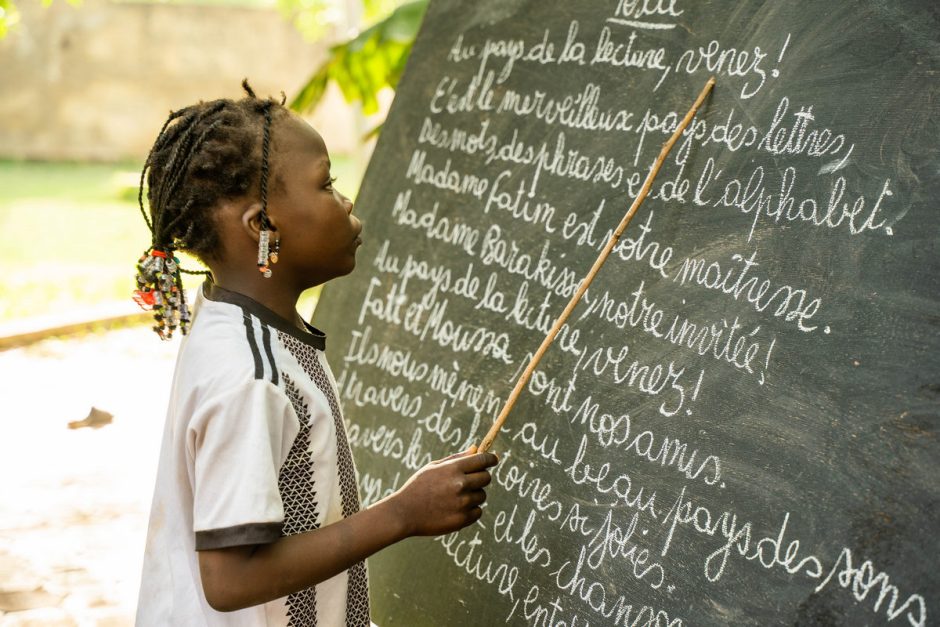 Au pays de la lecture, venez !
C'est le merveilleux pays des lettres,
Des mots, des phrases et de l'alphabet.
Madame Fatim est notre maîtresse.
Madame Barakissa, notre invitée !
Au pays de la lecture, venez !
Fatt et Moussa sont nos amis.
Ils nous mènent au beau pays des sons
A travers des histoires si jolies.
travers les et les chansons
lecture,